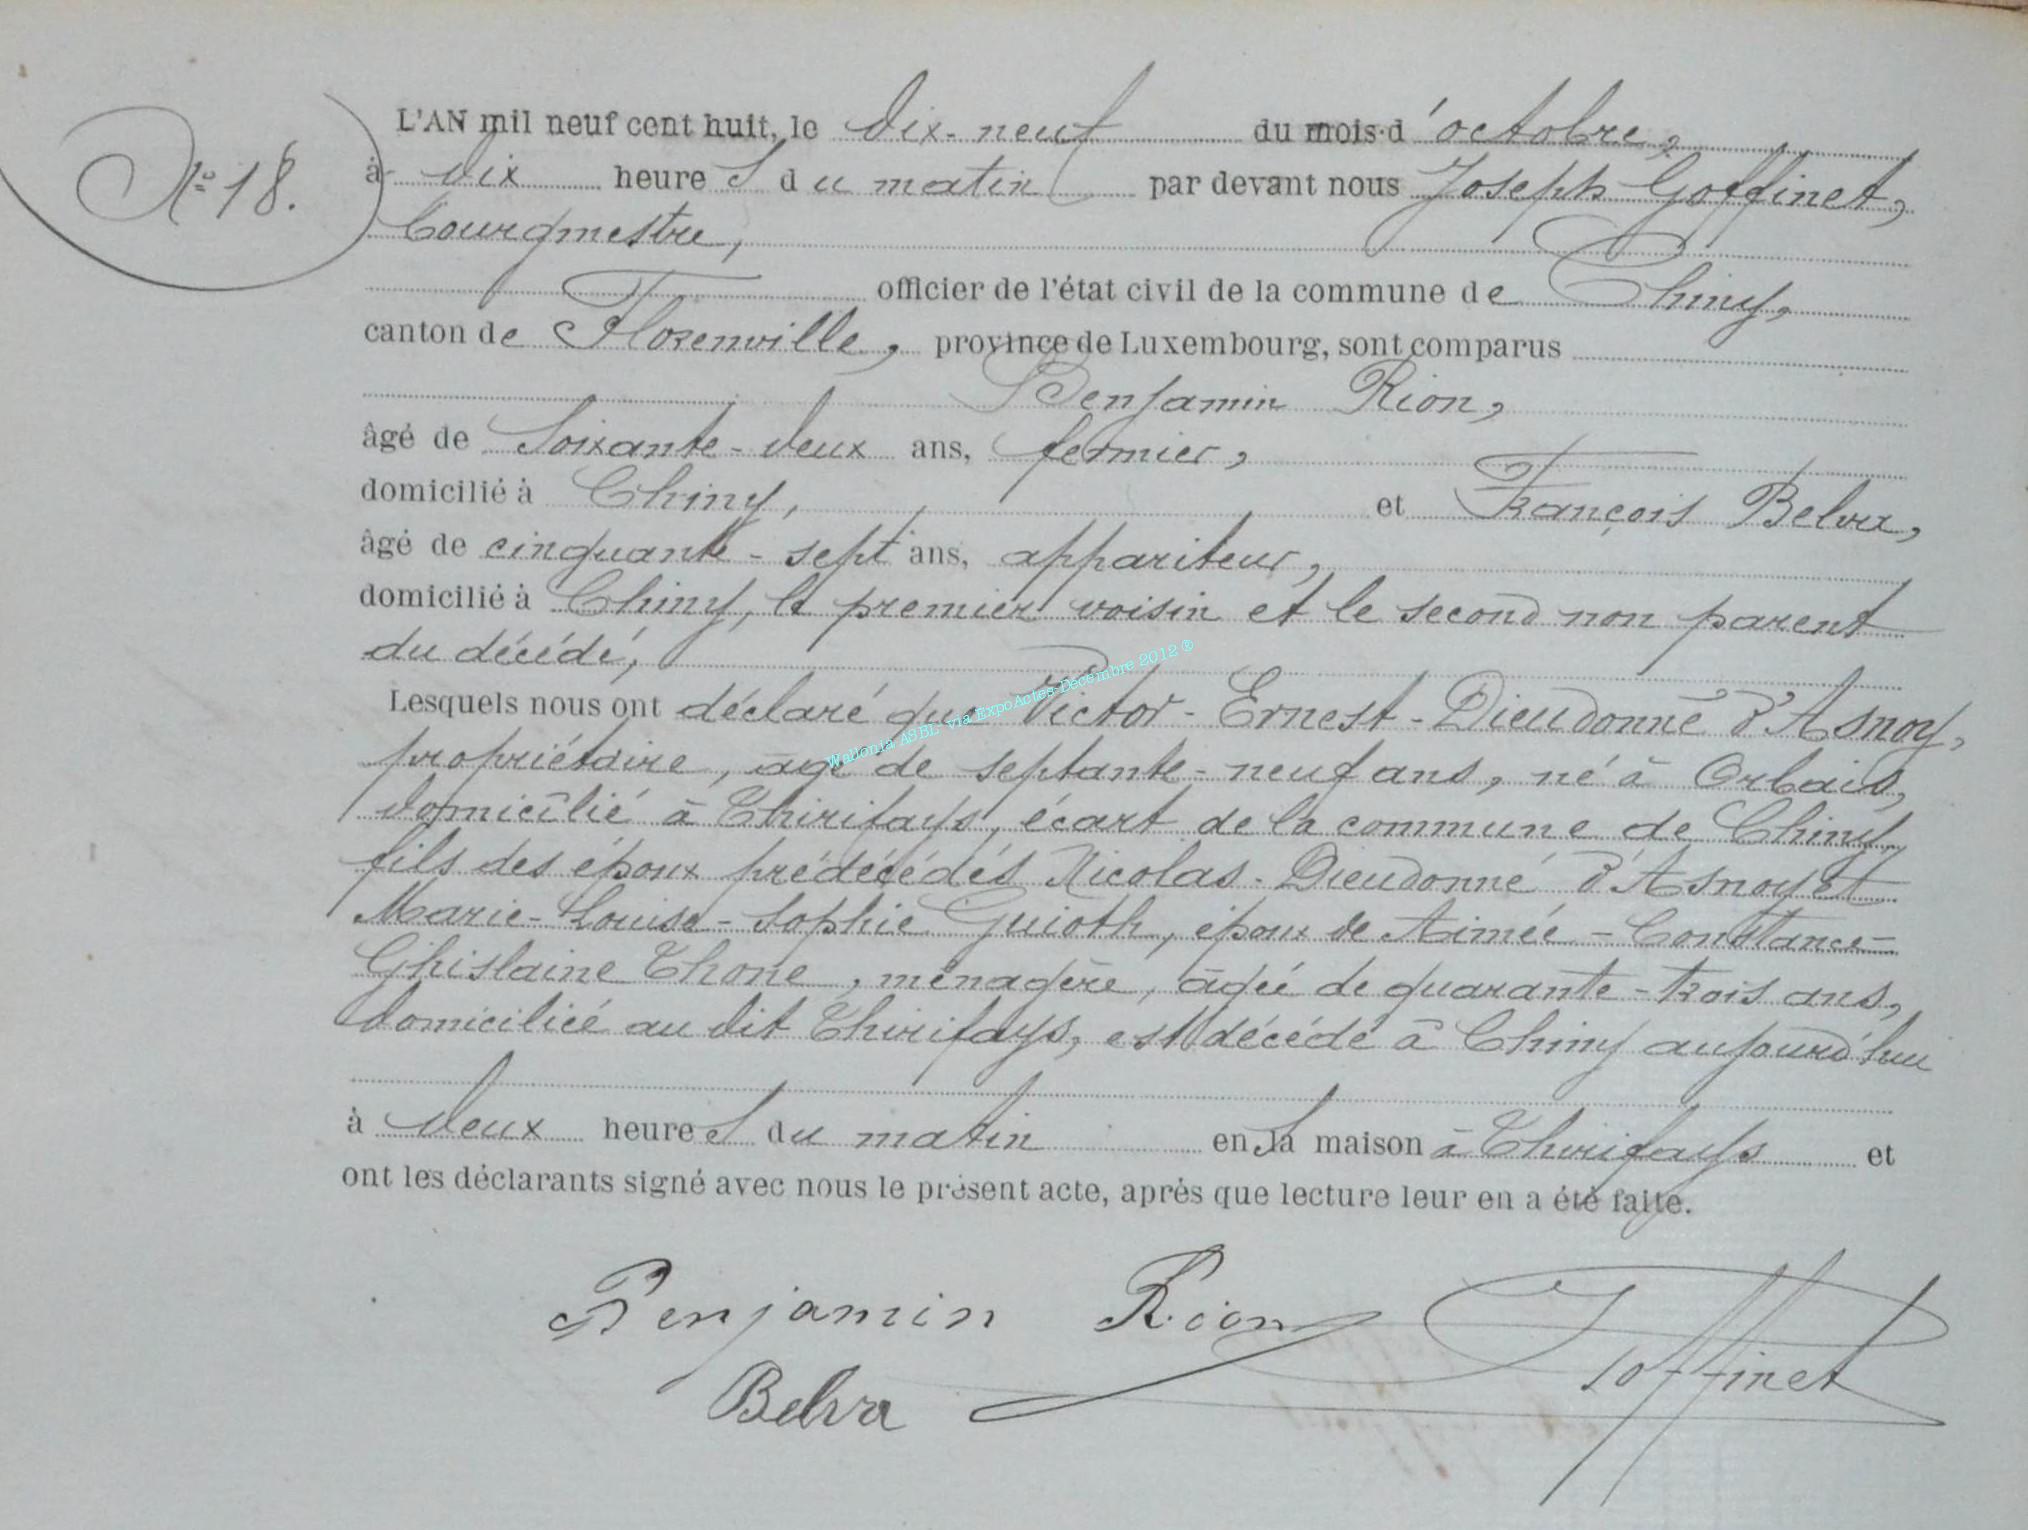 N° 18.
L'AN mil neuf cent huit, le dix-neuf du mois d'octobre,
à dix heures du matin par devant nous Joseph Goffinet,
bourgmestre,
officier de l'état civil de la commune de Chiny,
canton de Florenville, province de Luxembourg, sont comparus
Benjamin Rion,
âgé de soixante-deux ans, fermier,
domicilié à Chiny, et François Belva,
âgé de cinquante-sept ans, appariteur,
domicilié à Chiny, le premier voisin et le second non parent
du décédé,
Lesquels nous ont déclaré que Victor-Ernest-Dieudonné d'Asnoy,
propriétaire, âgé de septante-neuf ans, né à Orbais,
domicilié à Thirifays, écart de la commune de Chiny,
fils des époux prédécédés Nicolas-Dieudonné d'Asnoy et
Marie-Louise-Sophie Guioth, époux de Aimée-Constance-
Ghislaine Thone, ménagère, âgée de quarante-trois ans,
domiciliée au dit Thirifays, est décédé à Chiny aujourd'hui
à deux heures du matin en sa maison à Thirifays et
ont les déclarants signé avec nous le présent acte, après que lecture leur en a été faite.
Benjamin Rion Goffinet
Belva
Wallonia ASBL via ExpoActes-Décembre 2012 ®